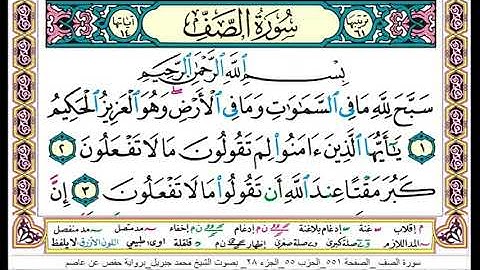 ترتيبها ٦١ سُورَةُ الصَّفِّ آياتها ١٤
بِسْمِ ٱللَّهِ ٱلرَّحْمَٰنِ ٱلرَّحِيمِ
سَبَّحَ لِلَّهِ مَا فِى ٱلسَّمَٰوَٰتِ وَمَا فِى ٱلْأَرْضِ ۖ وَهُوَ ٱلْعَزِيزُ ٱلْحَكِيمُ
١ يَٰٓأَيُّهَا ٱلَّذِينَ ءَامَنُوا۟ لِمَ تَقُولُونَ مَا لَا تَفْعَلُونَ ٢
كَبُرَ مَقْتًا عِندَ ٱللَّهِ أَن تَقُولُوا۟ مَا لَا تَفْعَلُونَ ٣ إِنَّ
م إقلاب غنة إدغام بلاغنة إدغام إخفاء مد متصل مد منفصل
مد اللازم صلة كبرى صلة صغرى إظهار قلقلة اوى طبيعي اللون الأزرق لا يلفظ
سورة الصف الصفحة ٥٥١ الحزب ٥٥ الجزء ٢٨ بصوت الشيخ محمد جبريل برواية حفص عن عاصم